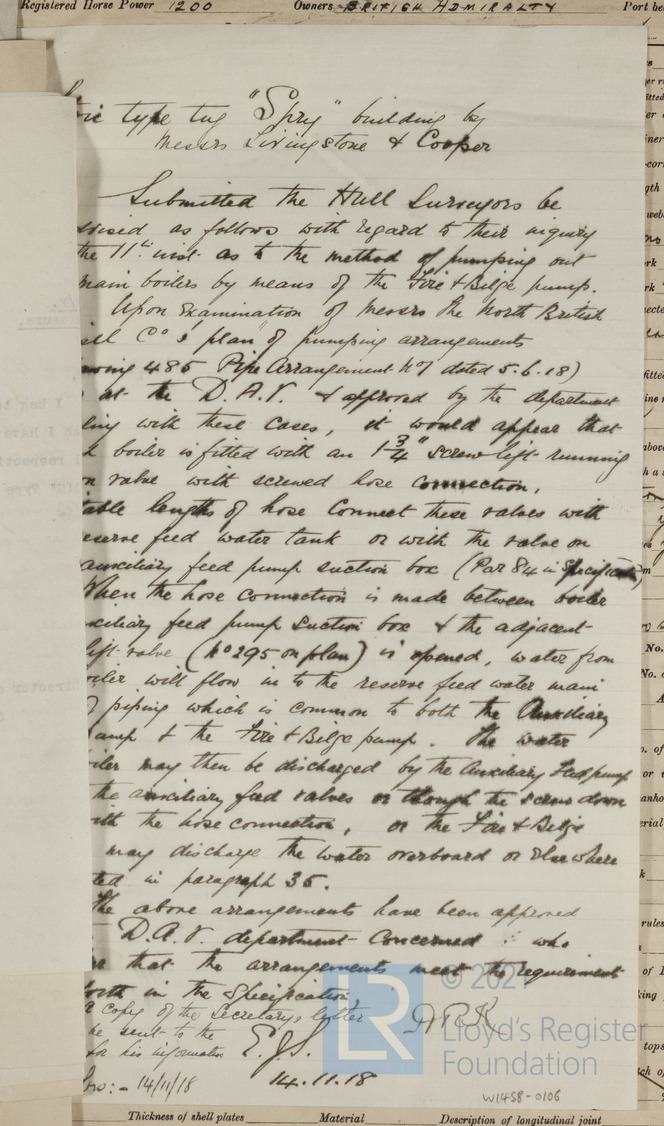 Registered Horse Power 1200 Owners BRITISH ADMIRALTY Port
type tug "Spry" building by
Messrs Livingstone & Cooper
Submitted the Hull Surveyors be
as follows with regard to their inquiry
the 11th inst. as to the method of pumping out
main boilers by means of the Fire & Bilge pump.
Upon Examination of Messrs the North British
Co's plan of pumping arrangements
485 Pipe Arrangement No 7 dated 5.6.18)
at the D.A.V. & approved by the department
with these cases, it would appear that
boiler is fitted with an 1 3/4" screw lift running
valve with screwed hose connection,
lengths of hose Connect these valves with
reserve feed water tank or with the valve on
auxiliary feed pump suction box (Par 84 in Specification)
When the hose connection is made between boiler
auxiliary feed pump suction box & the adjacent
lift valve (No 295 on plan) is opened, water from
boiler will flow in to the reserve feed water main
of piping which is common to both the Auxiliary
pump & the Fire & Bilge pump. The water
boiler may then be discharged by the Auxiliary Feed pump
the auxiliary feed valves or though the screw down
with the hose connection, or the Fire & Bilge
may discharge the water overboard or elsewhere
in paragraph 35.
The above arrangements have been approved
D.A.V. department Concerned who
that the arrangements meet the requirements
forth in the Specification
a copy of the Secretary's letter
be sent to the
for his information E.J.S.
14/11/18 14.11.18
© 2021
Lloyd's Register
Foundation
LR
W1458-0106
Thickness of shell plates Material Description of longitudinal joint